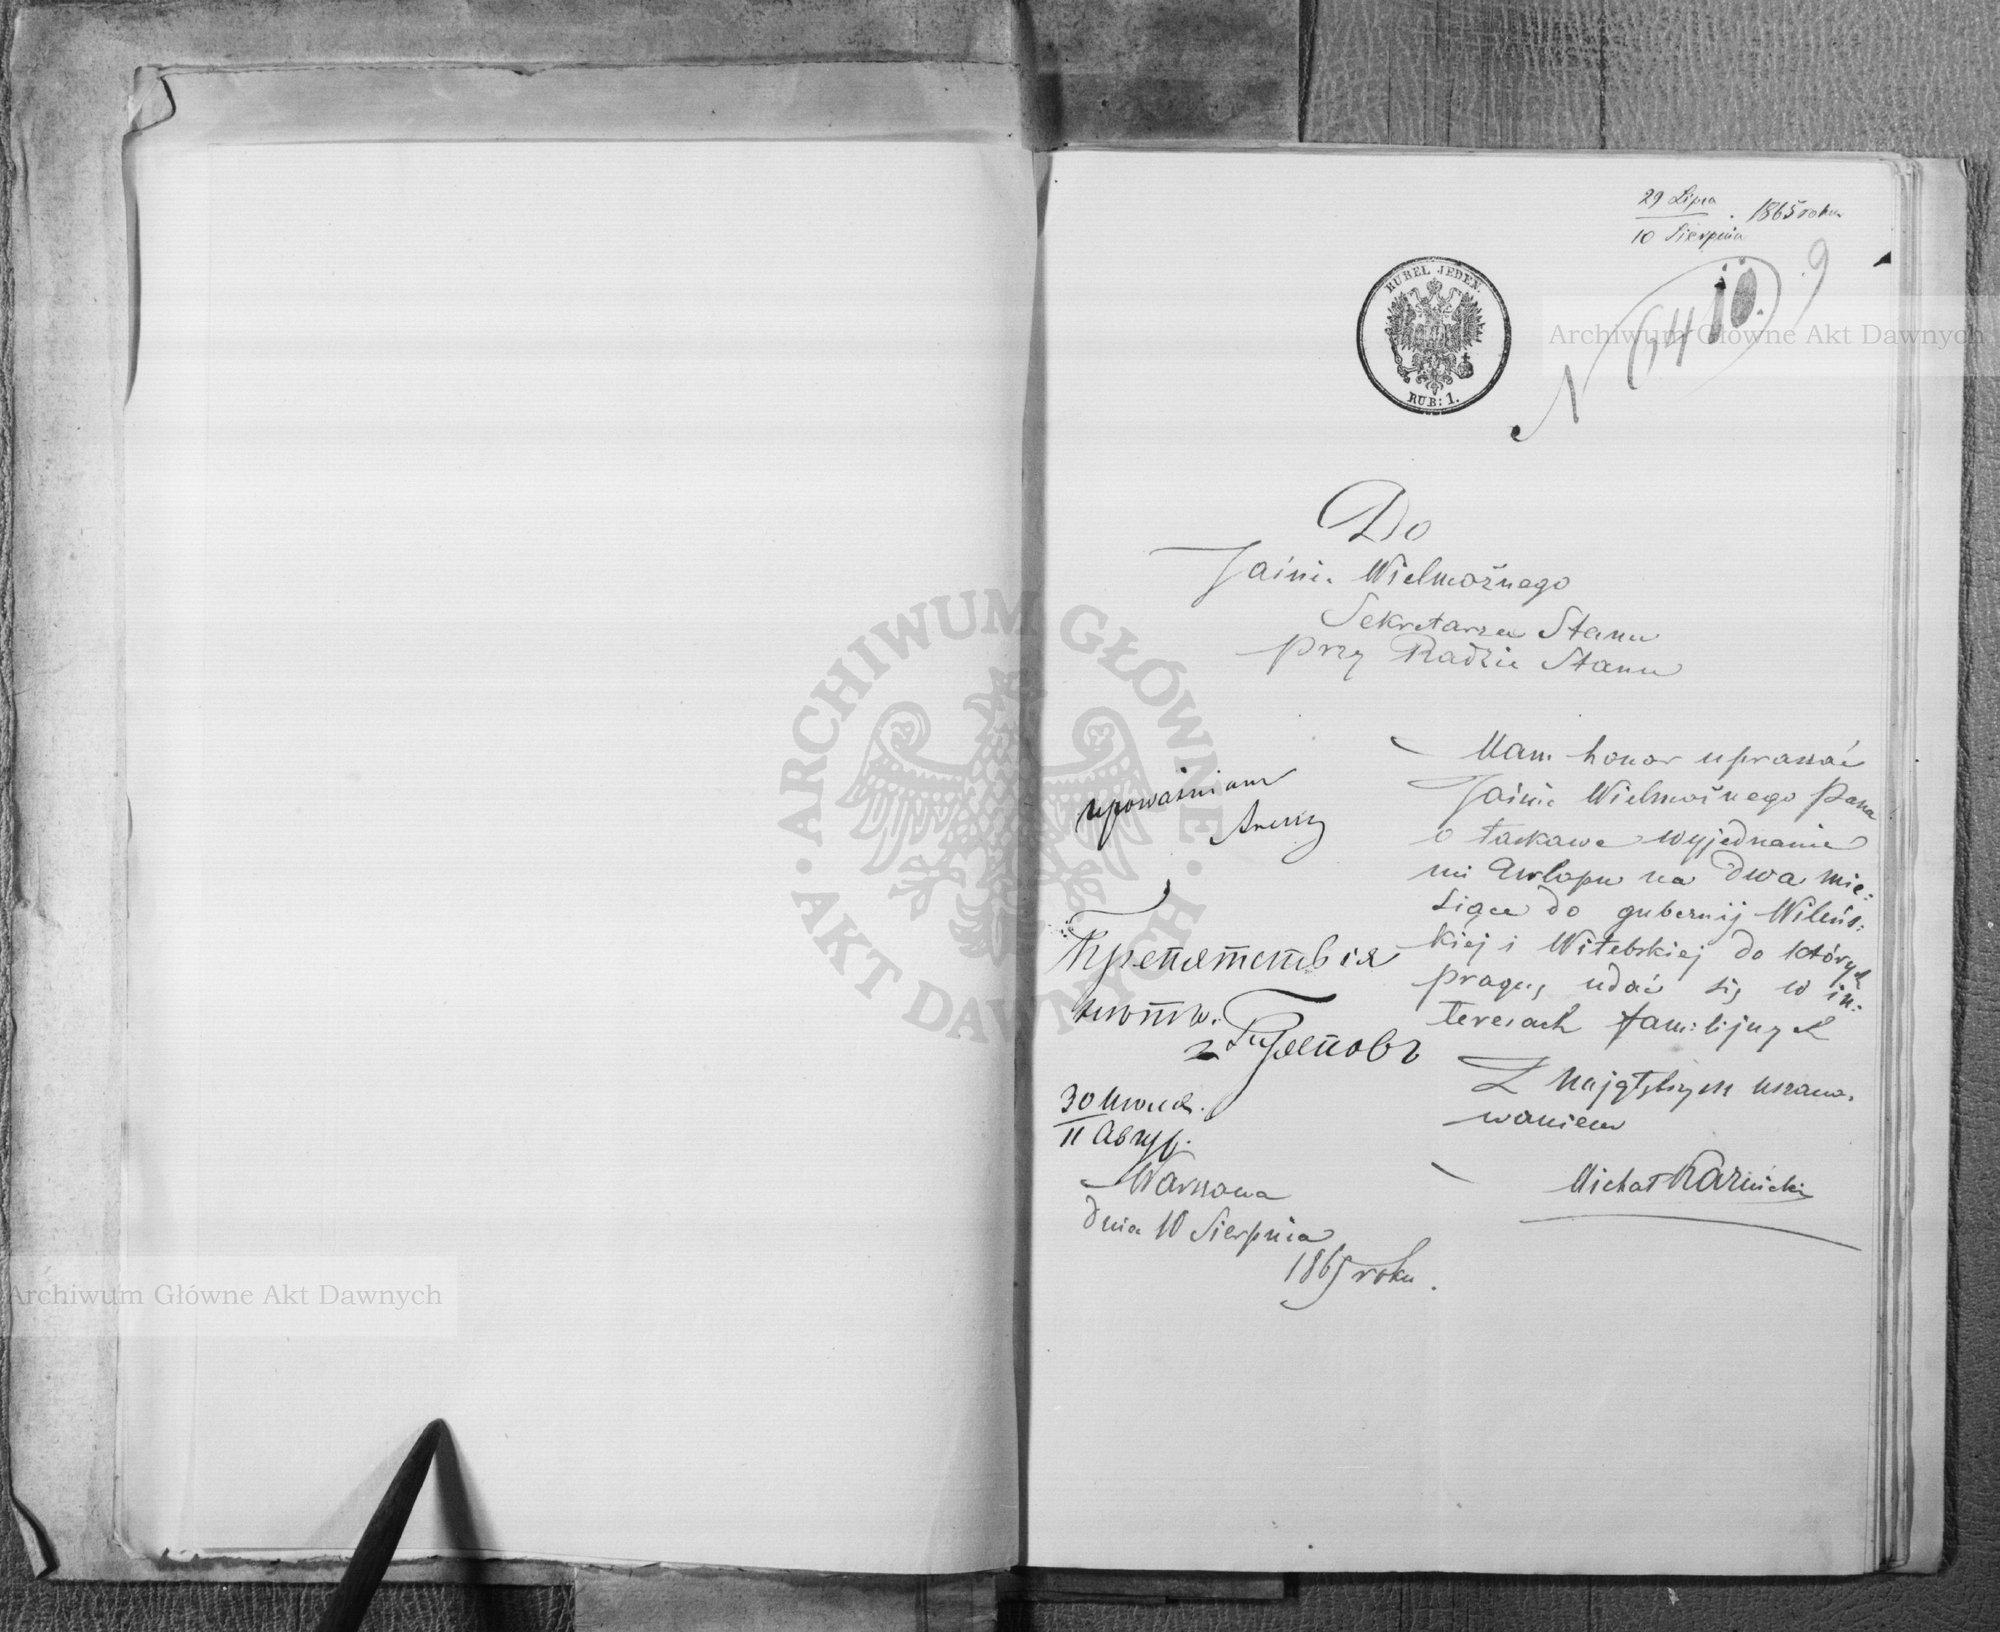 29 Lipca
10 Sierpnia 1865 roku
9
N 6410.
RUBEL JEDEN.
RUB: 1.
Do
Jaśnie Wielmożnego
Sekretarza Stanu
przy Radzie Stanu
Mam honor upraszać
Jaśnie Wielmożnego Pana
o łaskawe wyjednanie
mi Urlopu na dwa mie:
siące do gubernij Wileńs:
kiej i Witebskiej do których
pragnę udać się w in:
teresach familijnych
Z najgłębszym uszano.
waniem
Michał
upoważniam
Препятствія
нѣтъ.
30 Июля
11 Авгус.
Warszawa
dnia 10 Sierpnia
1865 roku.
ARCHIWUM GŁÓWNE
AKT DAWNYCH
Archiwum Główne Akt Dawnych
Archiwum Główne Akt Dawnych